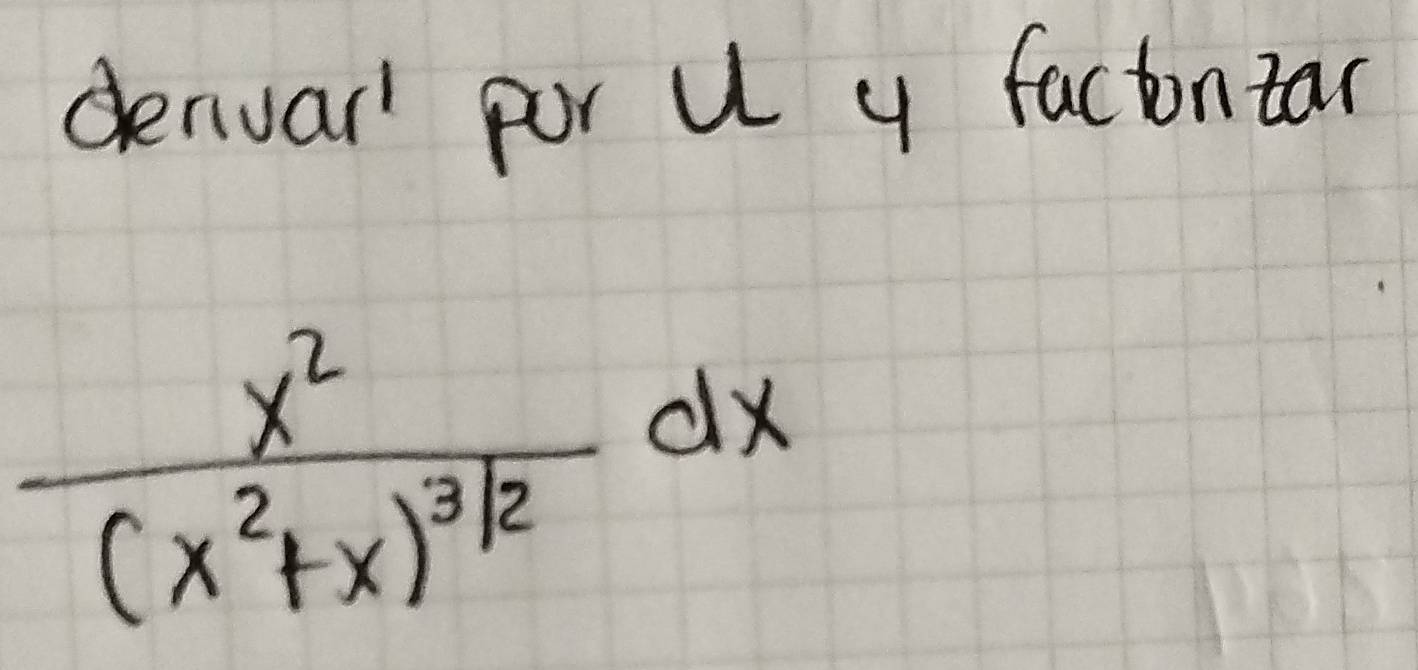 derivar por u y factorizar
x²
(x²+x)^3/2 dx